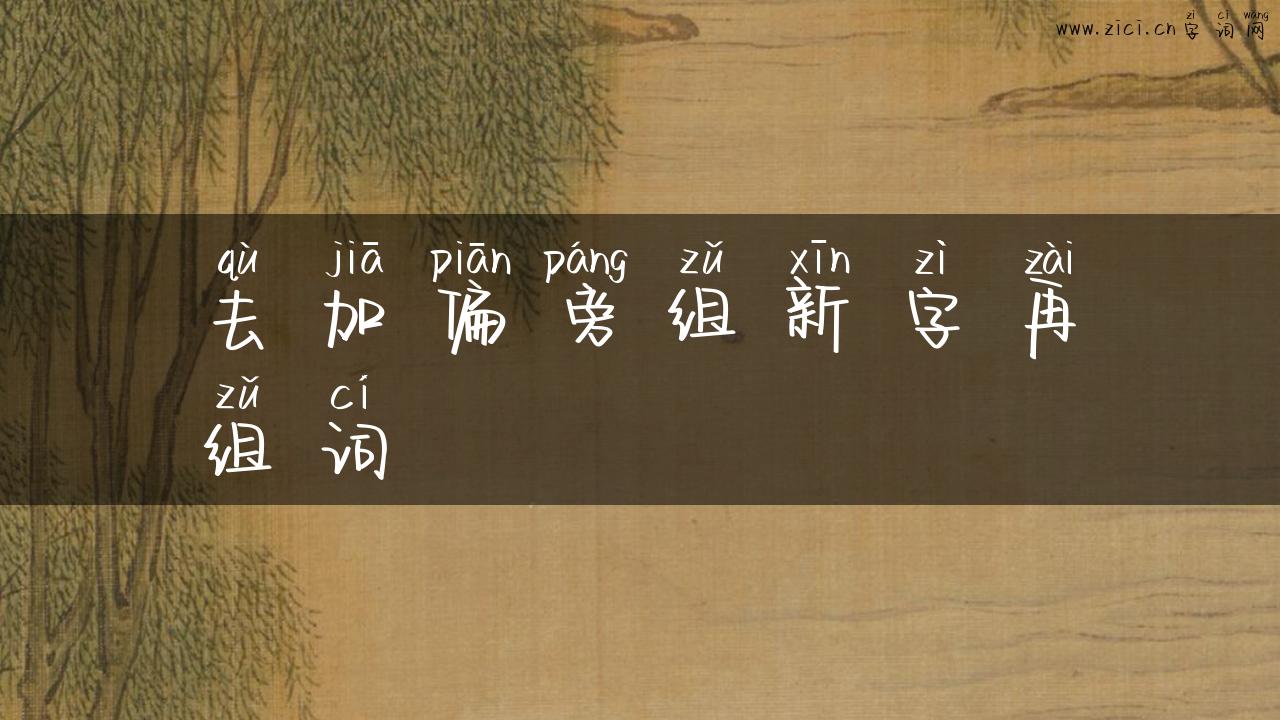 www.zici.cn 字词网
zì cí wǎng
qù jiā piān páng zǔ xīn zì zài
去加偏旁组新字再
zǔ cí
组词